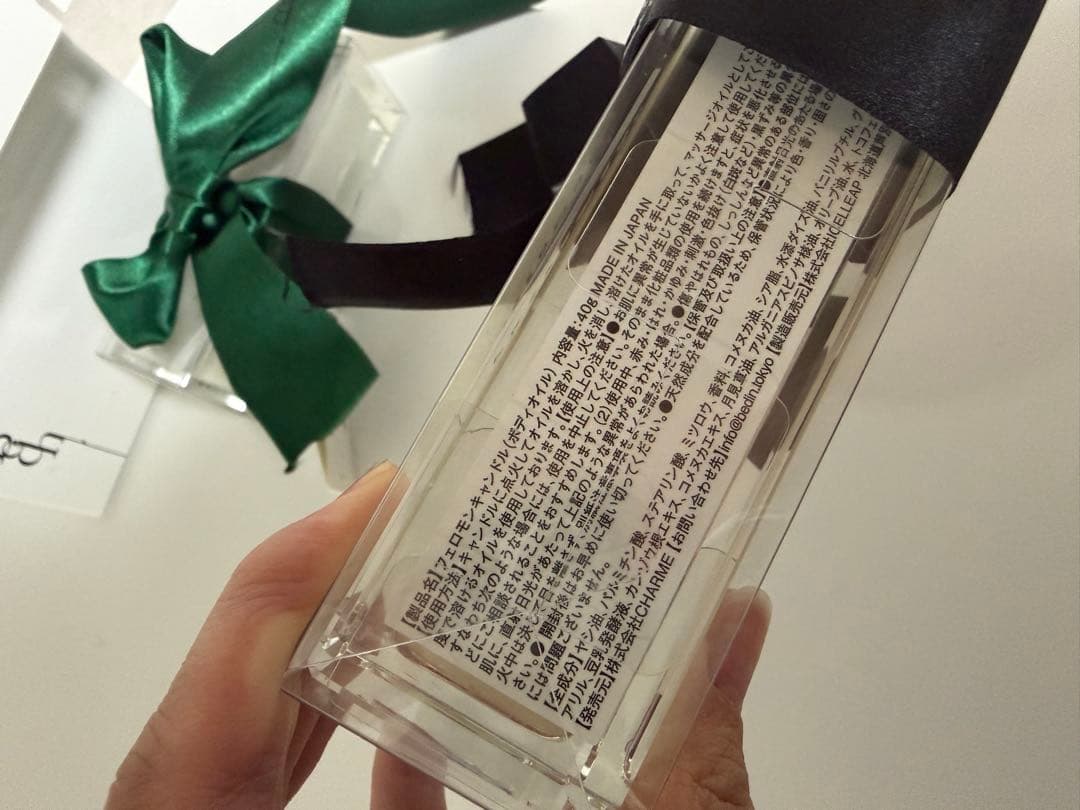 【製品名】フェロモンキャンドル(ボディオイル) 内容量:40g MADE IN JAPAN
使用方法】キャンドルに点火してオイルを溶かし、火を消し、溶けたオイルを手に取って、マッサージオイルとして
度で溶けるオイルを使用しております。【使用上の注意】●お肌に異常が生じていないかよく注意して使用してくだ
すなわち次のような場合には、使用を中止してください。そのまま化粧品類の使用を続けますと、症状を悪化させる
どにご相談されることをおすすめします。(2)使用中、赤み・はれ・かゆみ・刺激・色抜け(白斑など)・黒ずみ等の異
肌に、直射日光があたって上記のような異常があらわれた場合。●傷やはれもの、しっしんなど異常のある部位には
火中は決して目を離さず、
をよくお読みください。【保管及び取扱い上の注意】●直射日光のあたる場
さい。●開封後はお早めに使い切ってください。●天然成分を配合しているため、保管状況により色・香り・固さの
には問題ございません。
【全成分】ヤシ油、パルミチン酸、ステアリン酸、ミツロウ、香料、コメヌカ油、シア脂、水添ダイズ油、バニリルブチル、グ
アリル、豆乳発酵液、カンゾウ根エキス、コメヌカエキス、月見草油、アルガニアスピノサ核油、オリーブ油、水、トコフェ
【発売元】株式会社ICHARME 【お問い合わせ先】info@bedin.tokyo 【製造販売元】株式会社ICELLEAP 北海道